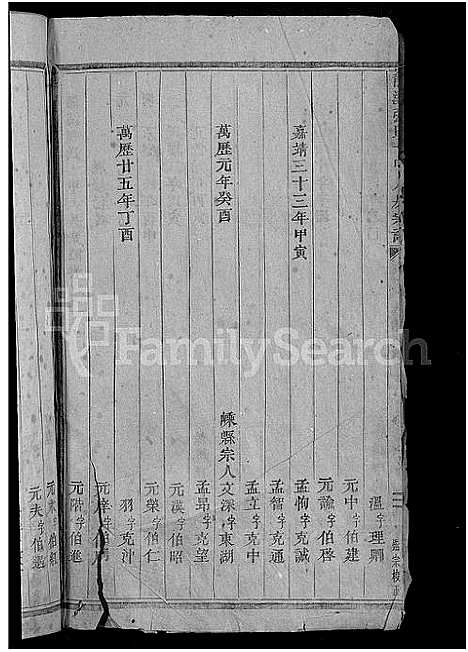 溫字理卿
元中字伯建
元諭字伯啓
嘉靖三十三年甲寅
孟恂字克誠
孟智字克通
孟立字克中
萬歷元年癸酉
嵊縣宗人文深字東湖
孟昂字克望
元漢字伯昭
元榮字伯仁
萬歷廿五年丁酉
羽字克沖
元梓字伯
元階字伯進
元夫字伯
FamilySearch